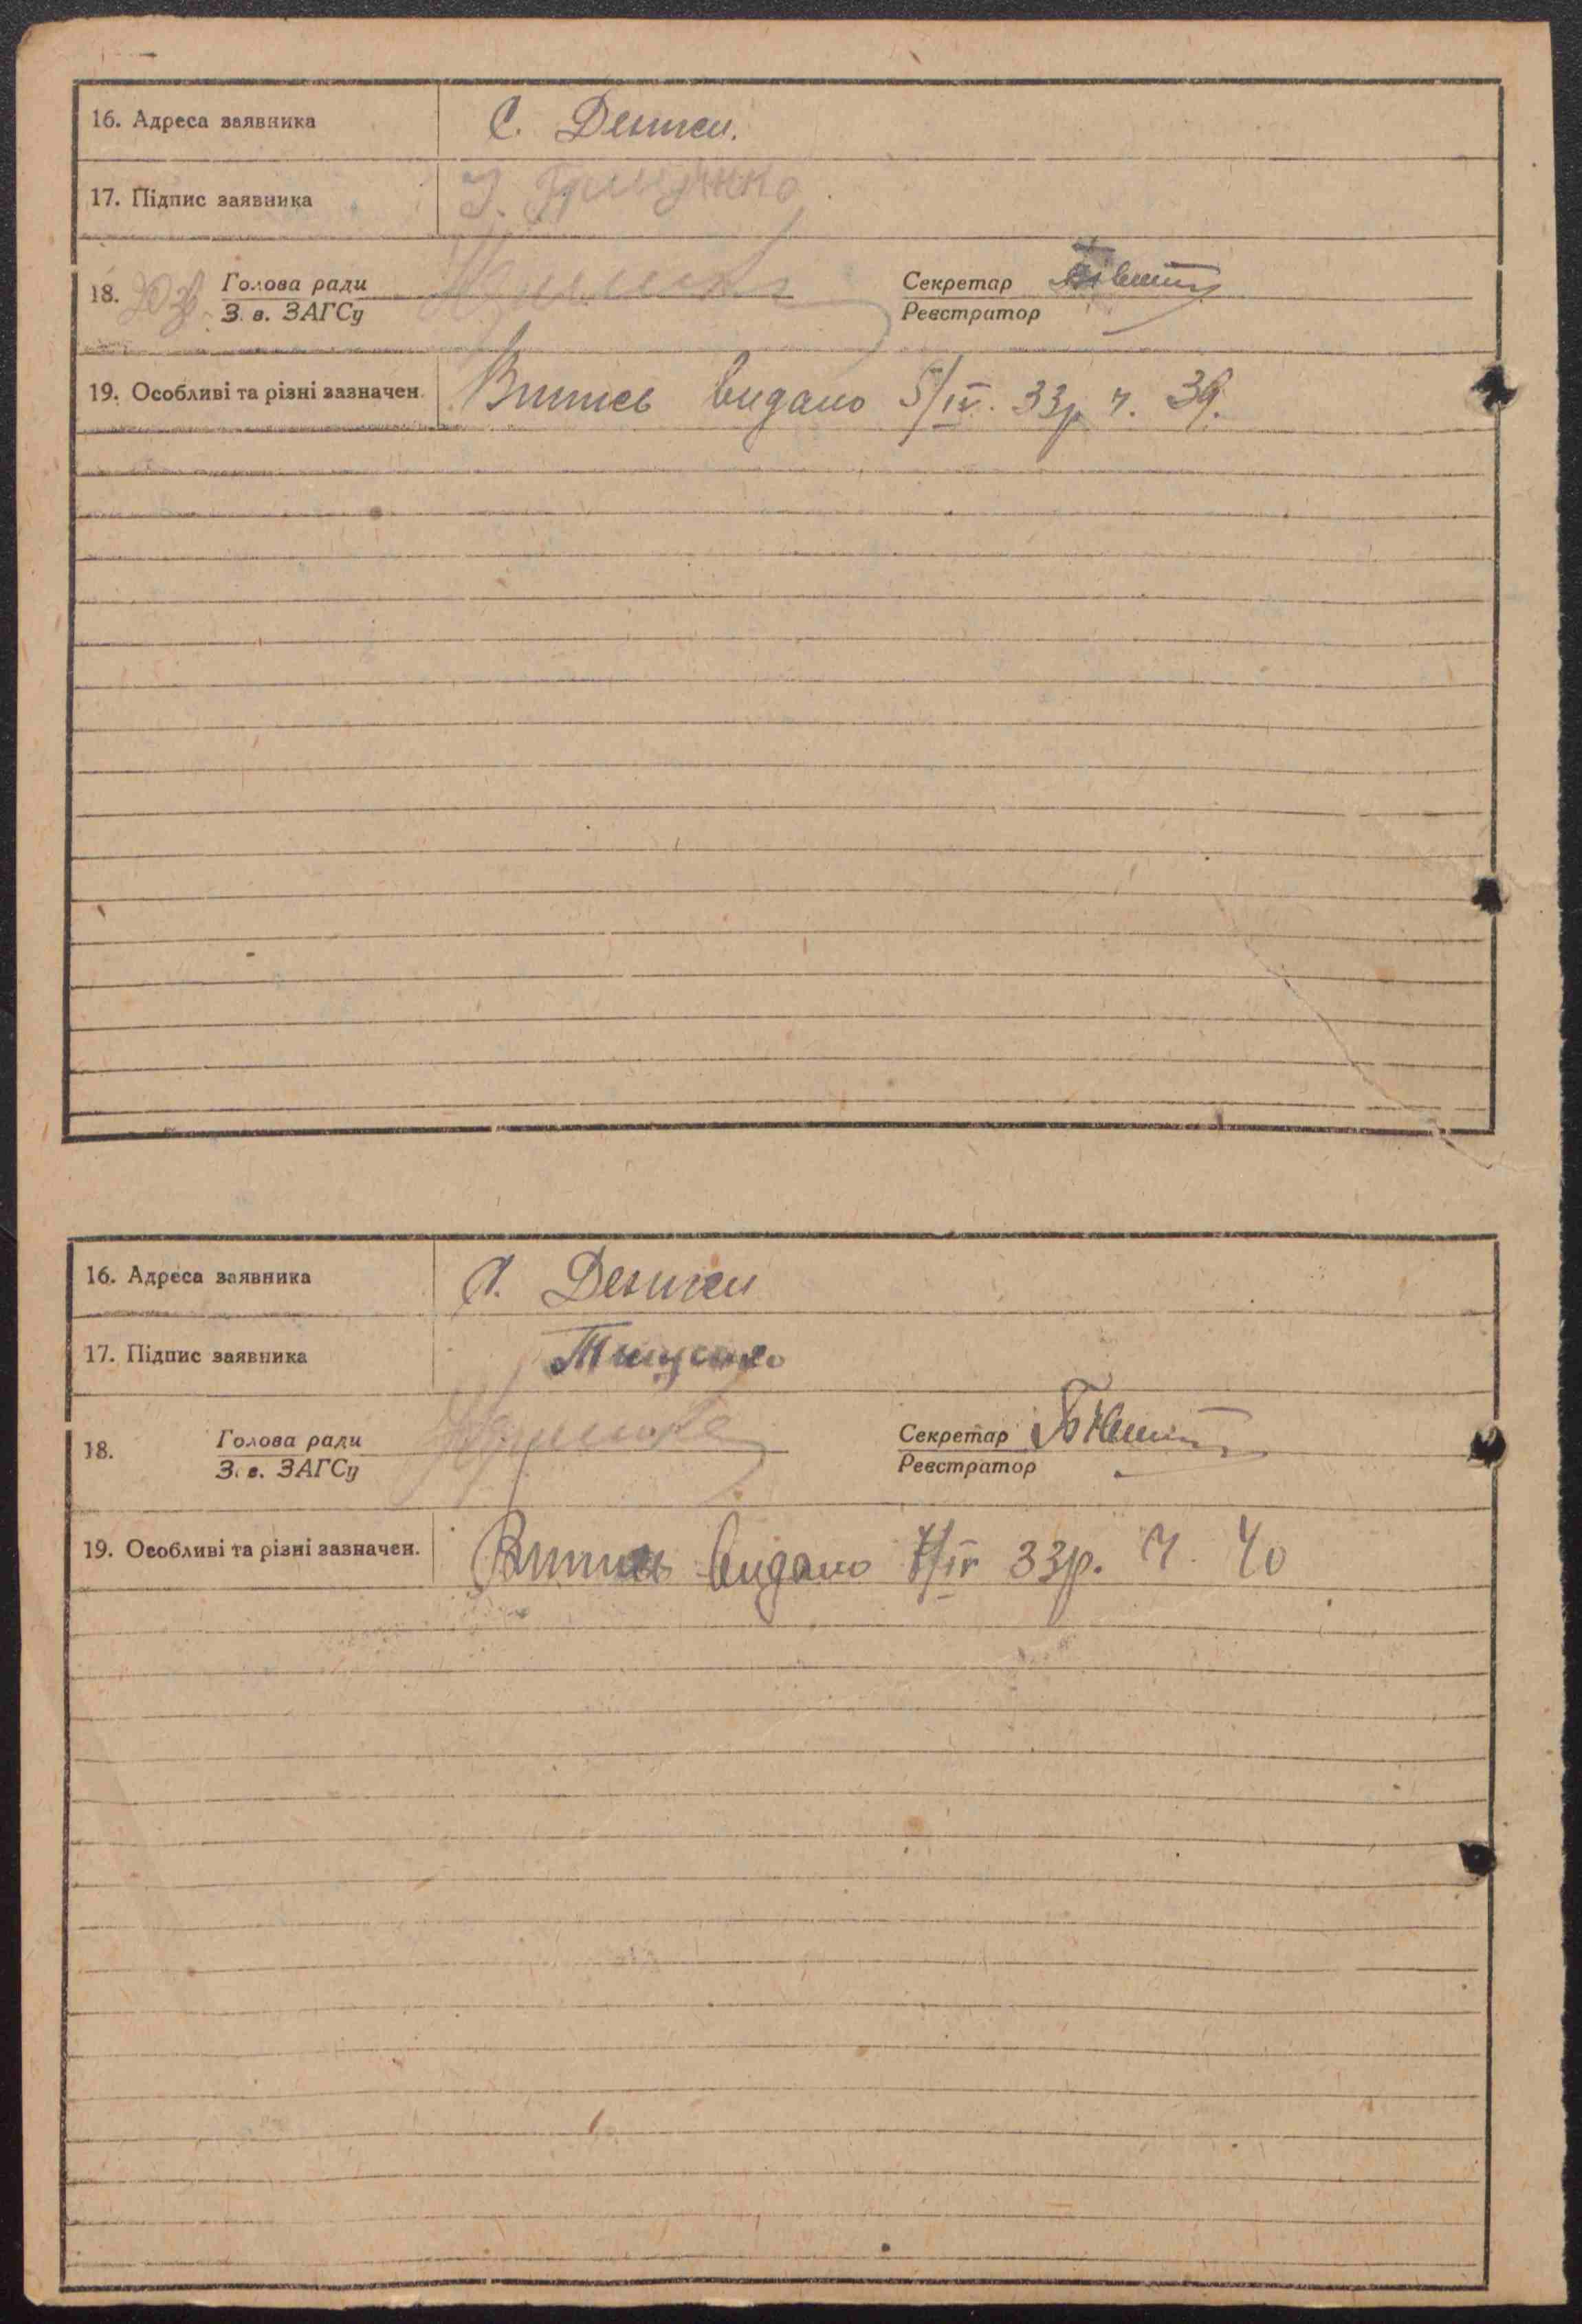 16. Адреса заявника С. Дешки.
17. Підпис заявника
18. Голова ради Секретар
З. в. ЗАГСу Реєстратор
19. Особливі та різні зазначен. Випись видано 5/IV. 33р ч. 39.
16. Адреса заявника С. Дешки
17. Підпис заявника Тищенко
18. Голова ради Секретар
З. в. ЗАГСу Реєстратор
19. Особливі та різні зазначен. Випись видано 7/IV 33р. ч. 40